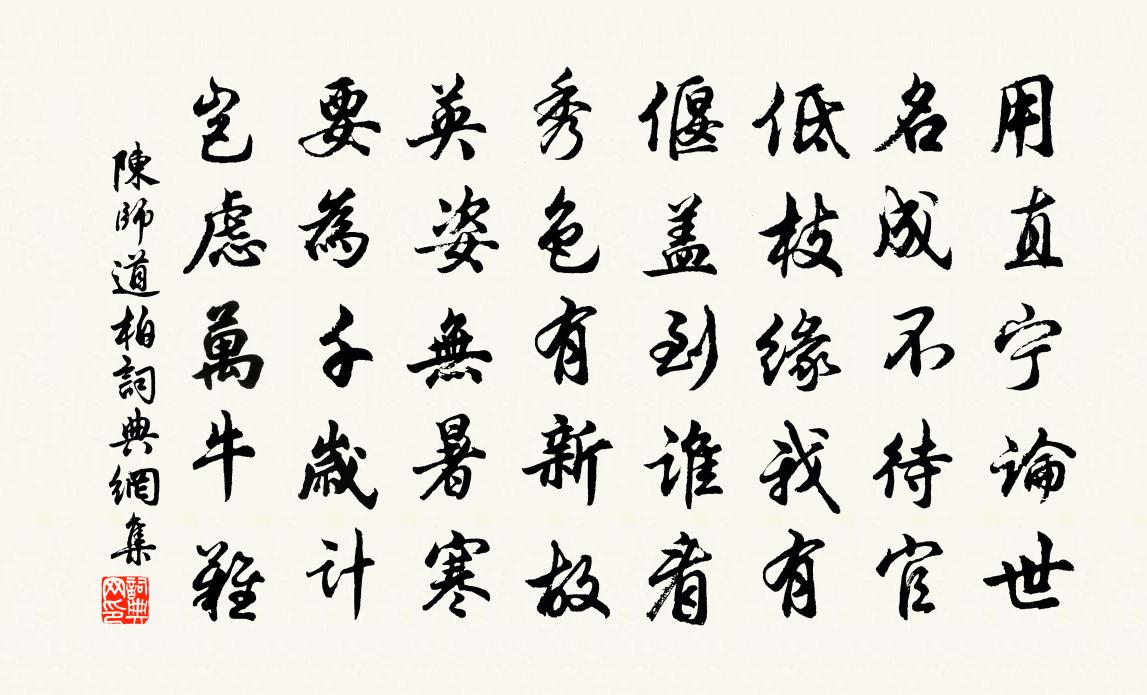 用直宁論世
名成不待官
低枝緣我有
偃盖到誰看
秀色有新故
英姿無暑寒
要為千歲計
豈慮萬牛難
陳師道柏詞典網集
詞典网印